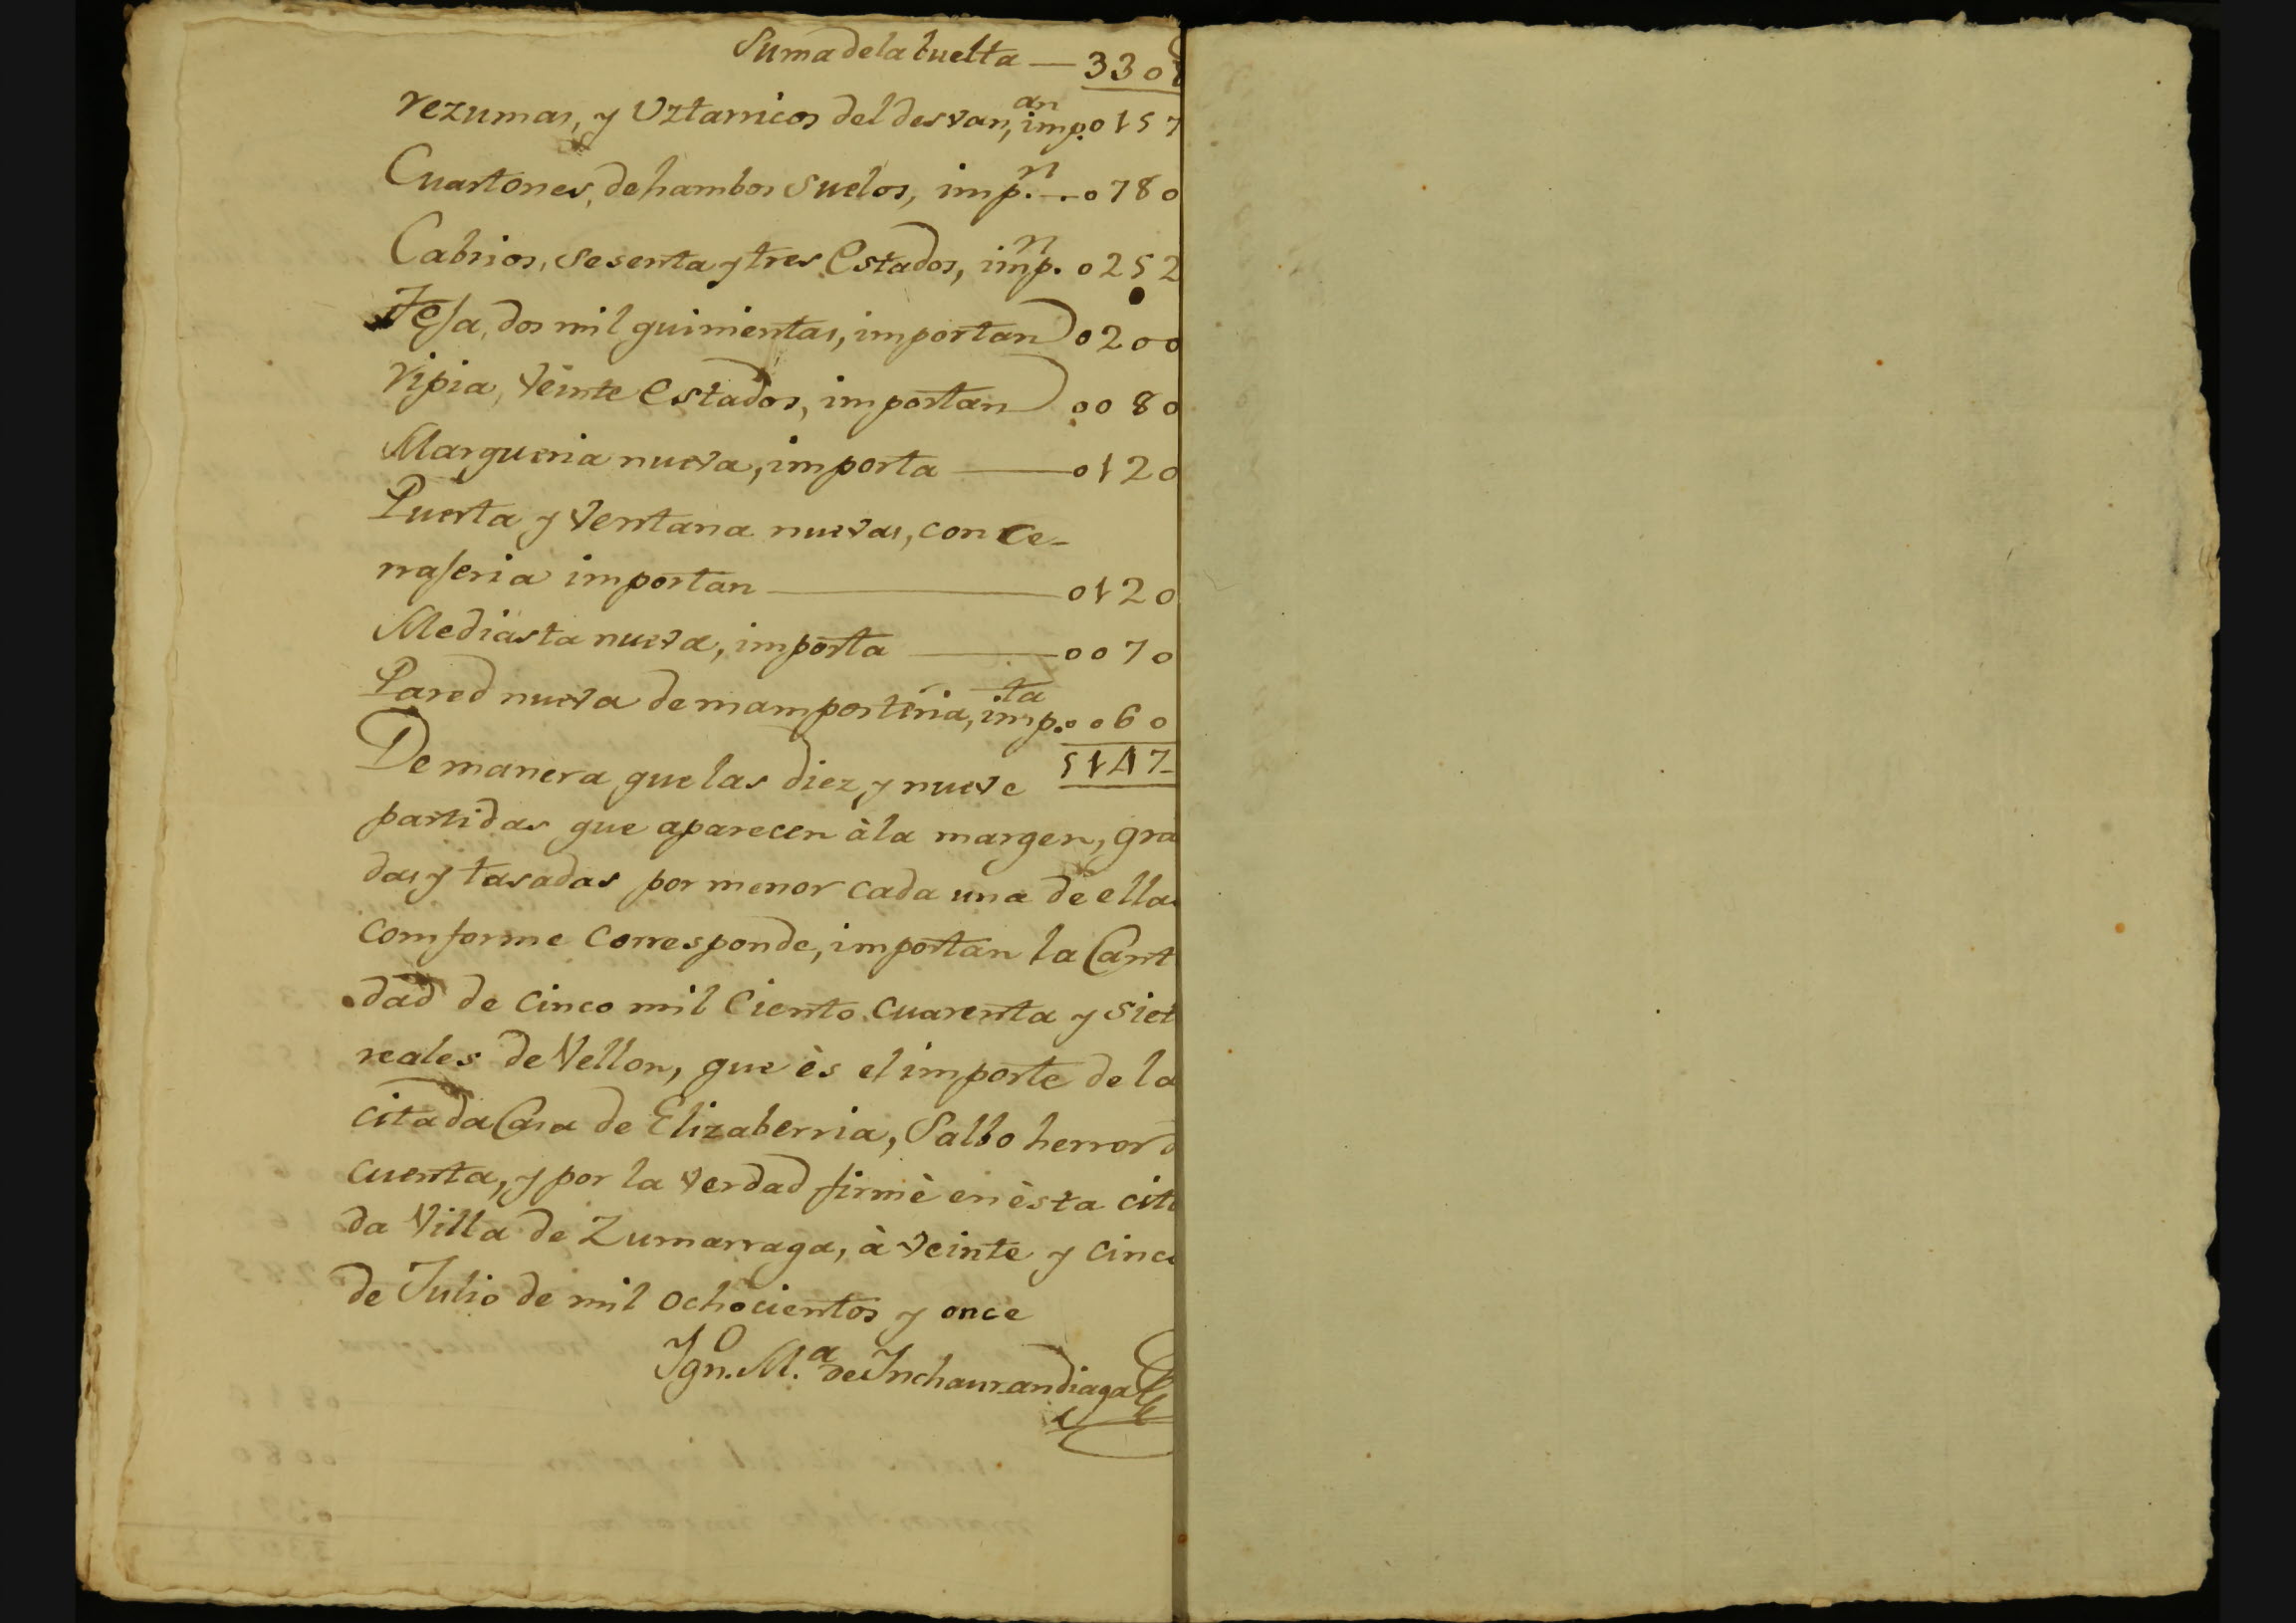 Suma de la buelta — 330
rezumas, y Uztarricos del desvan, imp.an 0157
Cuartones, de hambos Suelos, imp.n — 0780
Cabrios, Sesenta y tres Estados, imp.n 0252
Teja, dos mil quinientas, importan 0200
Ripia, Veinte Estados, importan 0080
Margueria nueva, importa — 0120
Puerta y Ventana nuevas, con ce-
rrajeria importan — 0120
Mediasta nueva, importa — 0070
Pared nueva de mamposteria, imp.ta 0060
5147
De manera que las diez y nueve
partidas que aparecen à la margen, gra
das y tasadas por menor cada una de ellas
comforme corresponde, importan la Cant
dad de cinco mil Ciento cuarenta y siet
reales de Vellon, que ès el importe de la
citada Casa de Elizaberria, Salbo herror d
cuenta, y por la verdad firmè en èsta cita
da Villa de Zumarraga, à veinte y cinco
de Julio de mil ochocientos y once
Ign.o M.a de Inchaurandiaga